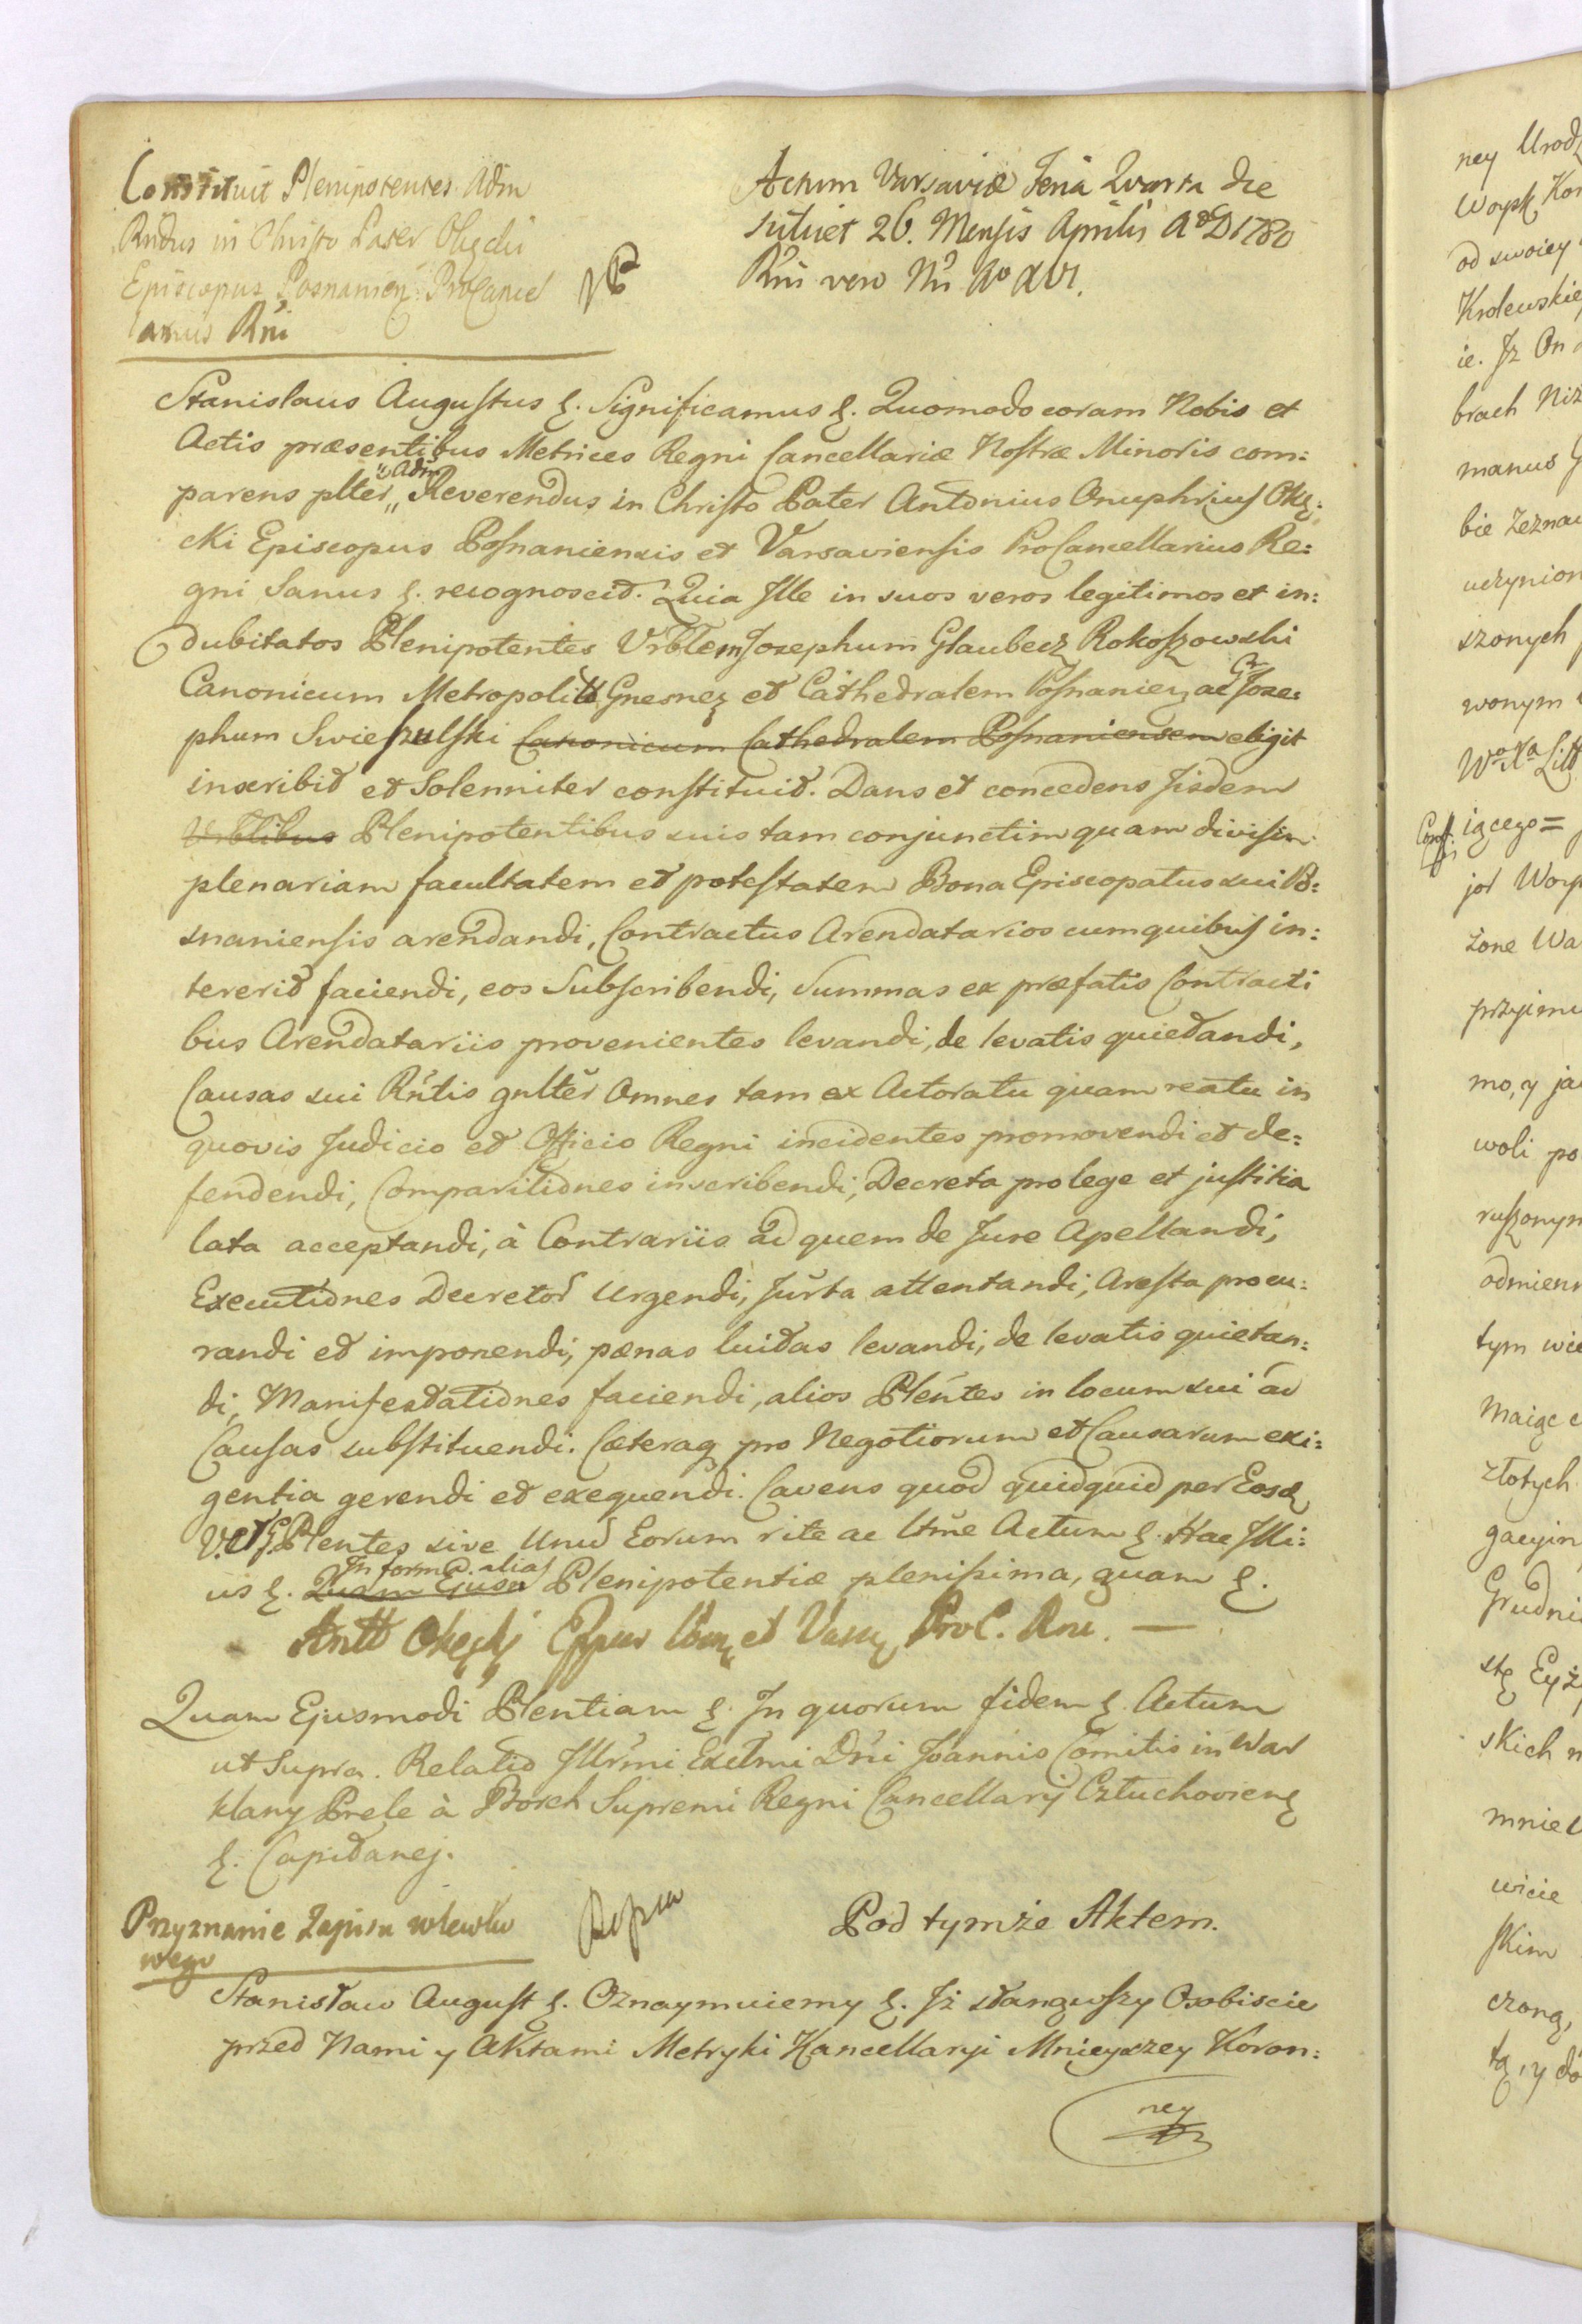 Constituit Plenipotentes Adm
Rndus in Christo Pater Okęcki
Episcopus Posnanien ProCancel
arius Rni
Actum Varsaviæ Feria Quarta die
scilicet 26. Mensis Aprilis Ao D 1780
Rni vero Nri Ao XVI.
Stanislaus Augustus &. Significamus &. Quomodo coram Nobis et
Actis præsentibus Metrices Regni Cancellariæ Nostræ Minoris com:
parens plter „Adm„ Reverendus in Christo Pater Antonius Onuphrius Okę:
cki Episcopus Posnaniensis et Varsaviensis ProCancellarius Re:
gni Sanus &. recognoscit. Quia Ille in suos veros legitimos et in:
dubitatos Plenipotentes Vrblem Josephum Glaubecz Rokoszowski
Canonicum Metropolitt Gnesnez et Cathedralem Posnaniez ac Gr Jose:
phum Swieszulski Canonicum Cathedralem Posnaniensem eligit
inscribit et Solenniter constituit. Dans et concedens Iisdem
Vrblibus Plenipotentibus suis tam conjunctim quam divisim
plenariam facultatem et potestatem Bona Episcopatus sui Po:
snaniensis arendandi, Contractus Arendatarios cum quibus in:
tererit faciendi, eos Subscribendi, Summas ex præfatis Contracti
bus Arendatariis provenientes levandi, de levatis quietandi,
Causas sui Rntis gnlter Omnes tam ex Actoratu quam reatu in
quovis Judicio et Officio Regni incidentes promovendi et de:
fendendi, Comparitiones inscribendi, Decreta pro lege et justitia
lata acceptandi, à Contrariis ad quem de Jure Apellandi,
Executiones Decretor Urgendi, Jurta attentandi, Aresta procu:
randi et imponendi, pænas luitas levandi, de levatis quietan:
di, Manifestationes faciendi, alios Plentes in locum sui ad
Causas substituendi. Cæteraq pro Negotiorum et Causarum exi:
gentia gerendi et exequendi. Cavens quod quidquid per Eosd
V. et G Plentes sive Unum Eorum rite ac ltme Actum &. Hac Illi:
us &. Quam Ejusd In forma alias Plenipotentiæ plenissima, quam &.
Antt Okęcki Eppus Posn et Vars ProC. Rni. —
Quam Ejusmodi Plentiam &. In quorum fidem &. Actum
ut Supra. Relatio Illrmi Excelmi Dni Joannis Comitis in War
klany Prele à Borch Supremi Regni Cancellarij Człuchovien
&. Capitanej.
Przyznanie Zapisu wlewko
wego
Pod tymże Aktem.
Stanisław August &. Oznaymuiemy &. Jż stanąwszy Osobiscie
przed Nami y Aktami Metryki Kancellaryi Mnieyszey Koron:
ney
ney Urodz
Woysk Kor
od swoiey
Krolewskie
ie. Jż On
brach Niż
manus
bie Zeznaw
uczynion
szonych
wonym
iącego =
jor Woys
żone Wa
przyimu
mo, y ja
woli po
ruszonym
odmienn
tym wie
Maiąc
złotych
gacyin
Grudni
stę
skich
mnie
wicie
skim
czoną,
tą, y do